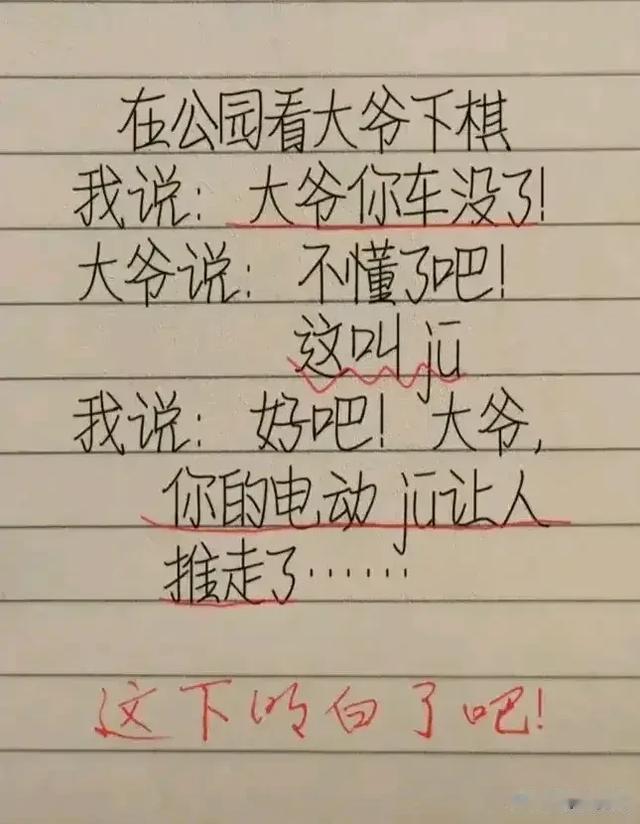 在公园看大爷下棋
我说：大爷你车没了！
大爷说：不懂了吧！
这叫 jū
我说：好吧！大爷，
你的电动 jū让人
推走了……
这下明白了吧！